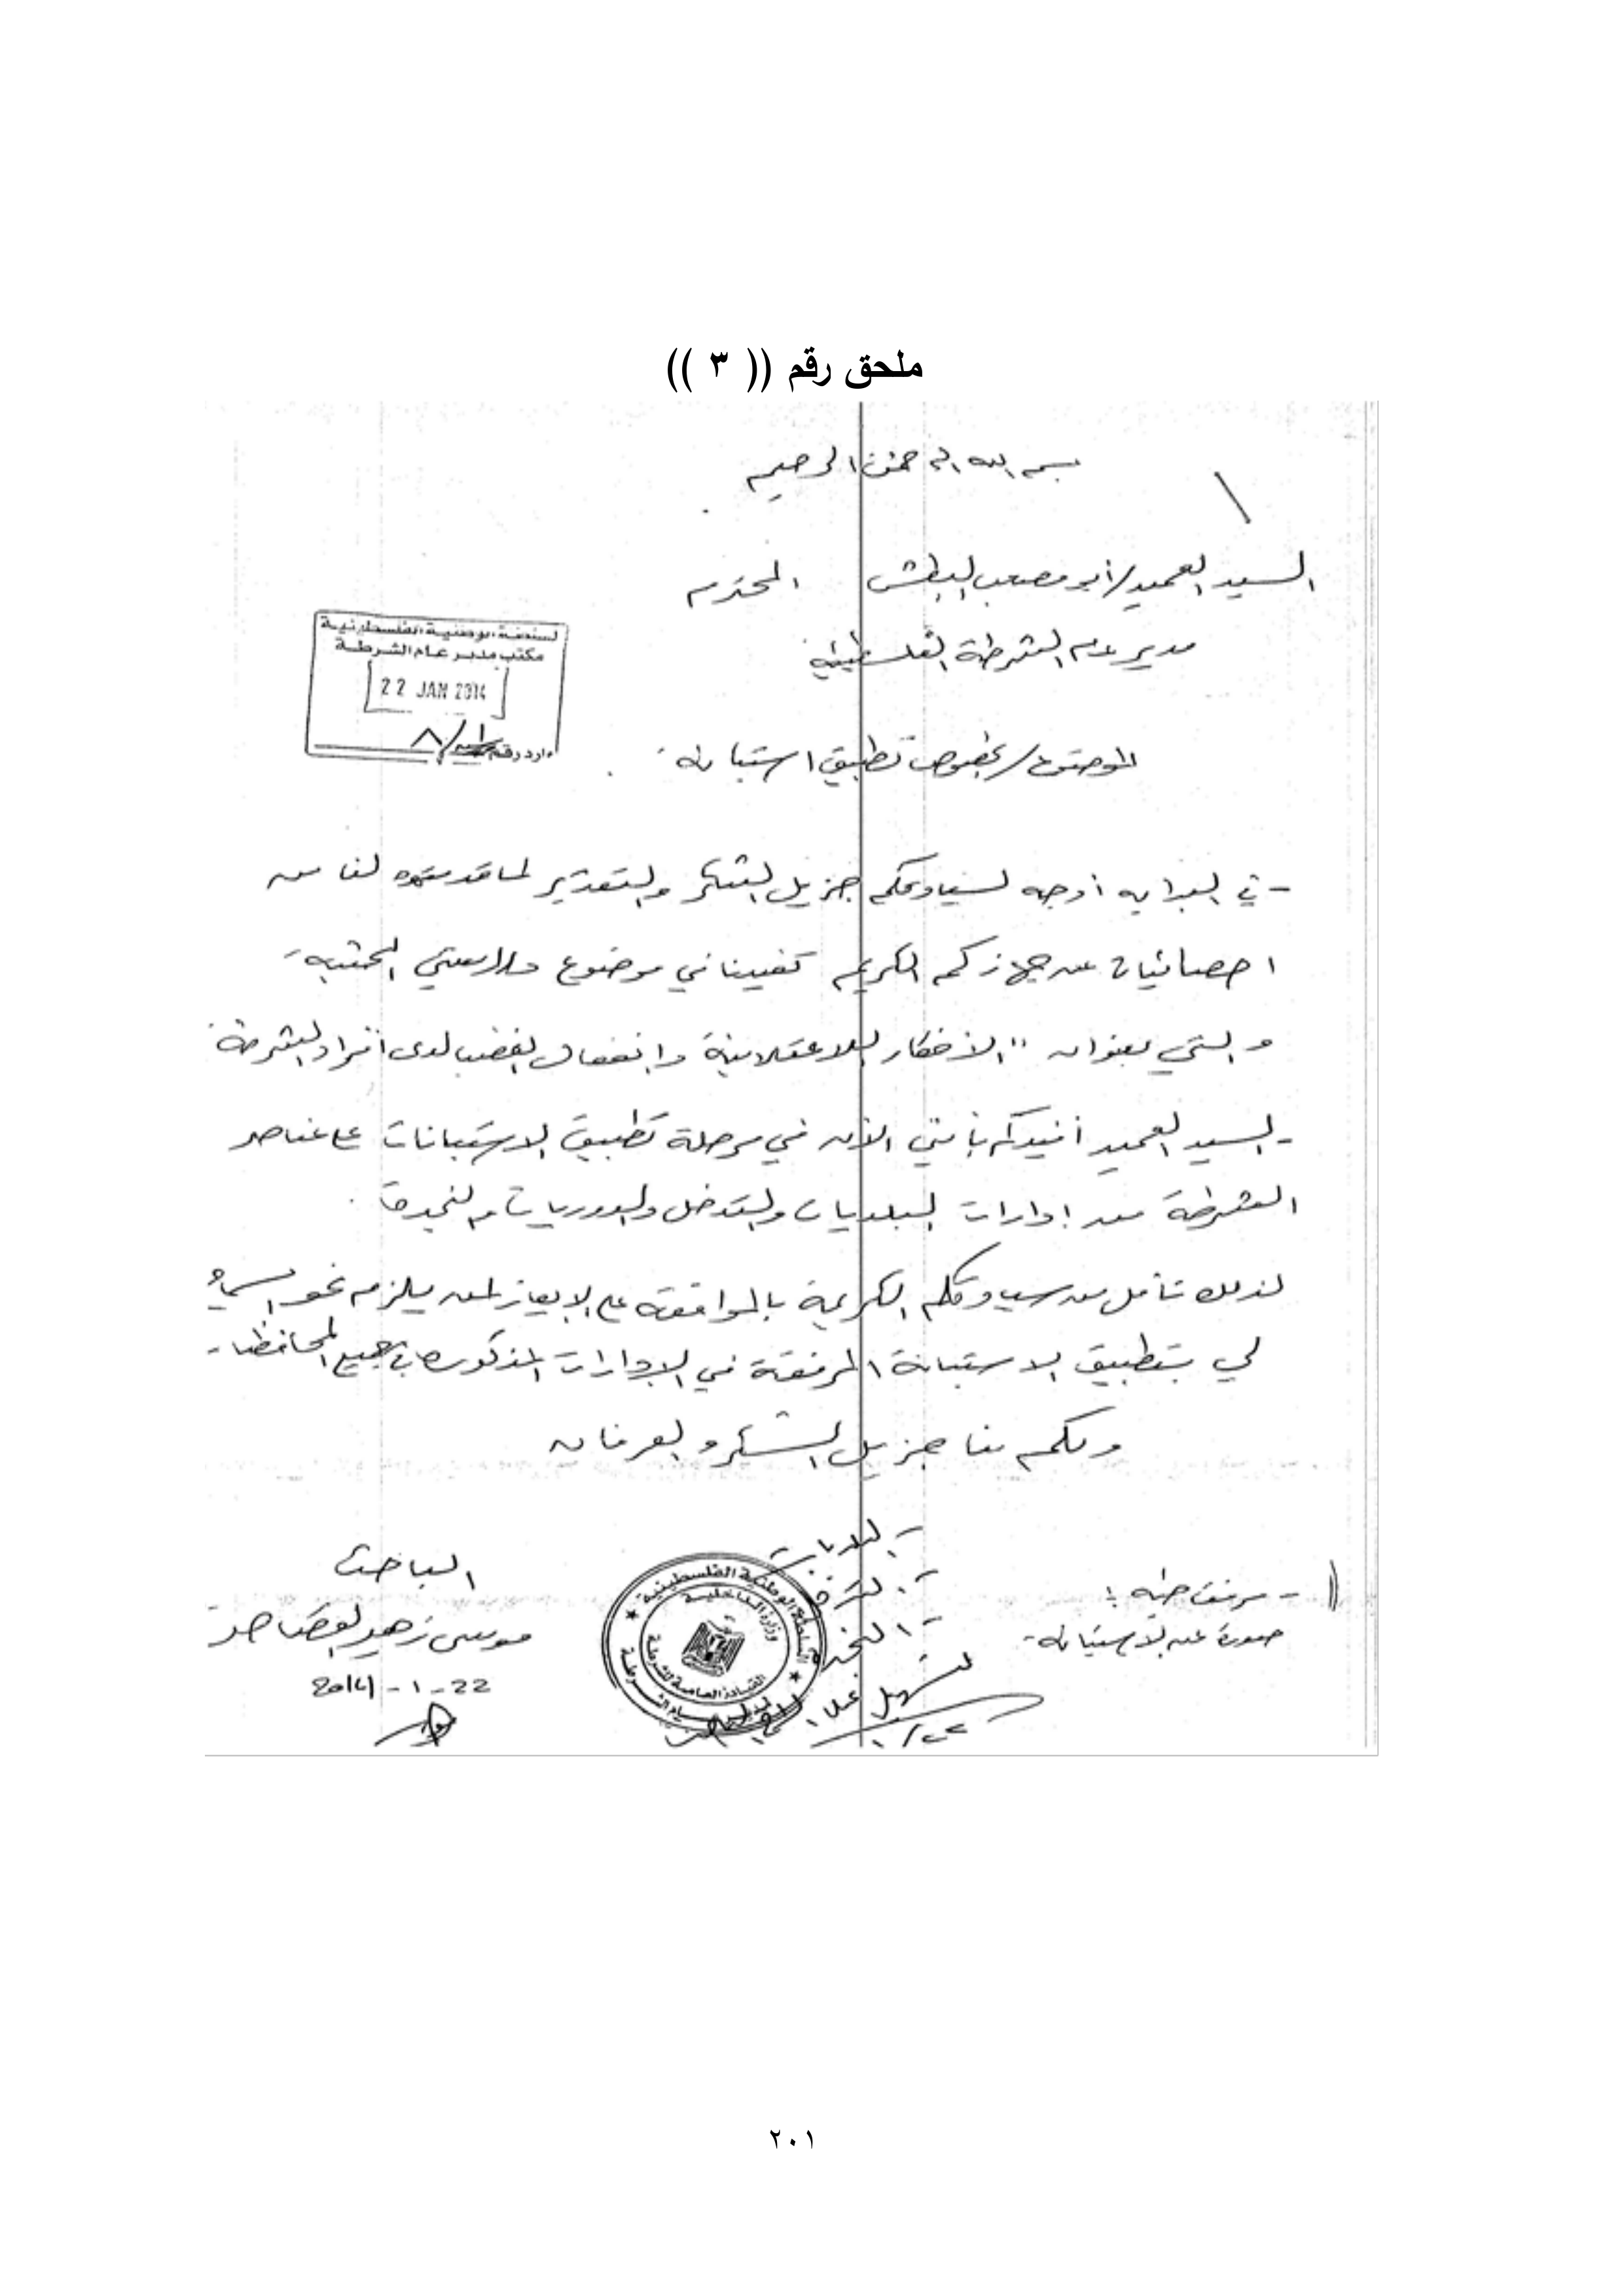 ملحق رقم (( ٣ ))
بسم الله الرحمن الرحيم
السيد العميد/ أبو مصعب البطش المحترم
مدير عام الشرطة الفلسطينية
السلطة الوطنية الفلسطينية
مكتب مدير عام الشرطة
22 JAN 2014
وارد رقم
الموضوع/ بخصوص تطبيق استبانة
- في البداية أوجه لسيادتكم جزيل الشكر والتقدير لما قدمتموه لنا من
احصائيات عن جهازكم الكريم تفيدنا في موضوع دراستي
والتي بعنوان " الأفكار اللاعقلانية وانفعال الغضب لدى أفراد الشرطة
- السيد العميد أفيدكم بأنني الآن في مرحلة تطبيق الاستبانات على عناصر
الشرطة من إدارات البلديات والتدخل والدوريات والنجدة
لذلك نأمل من سيادتكم الكريمة بالموافقة على الإيعاز لمن يلزم نحو السماح
لي بتطبيق الاستبانة المرفقة في الإدارات المذكورة في جميع المحافظات
ولكم منا جزيل الشكر والعرفان
- مرفق طيه :
صورة عن الاستبانة
- البلديات
لتسهيل
السلطة الوطنية الفلسطينية
وزارة الداخلية
القيادة العامة للشرطة
الباحث
موسى زهير
22-1-2014
٢٠١